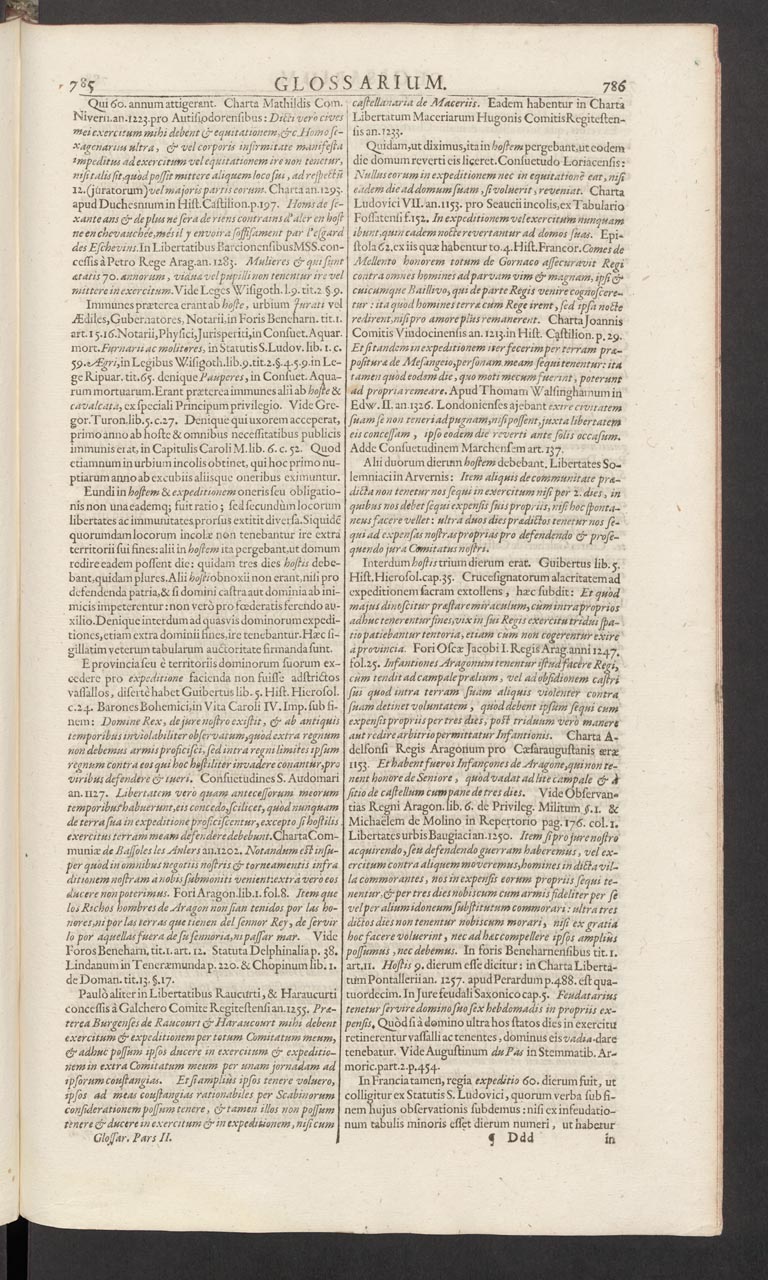 785
GLOSSARIUM.
786
Qui 60. annum attigerant. Charta Mathildis Com.
Nivern. an. 1223. pro Autisiodorensibus: Dicti verò cives
mei exercitum mihi debent & equitationem, &c. Homo se-
xagenarius ultra, & vel corporis infirmitate manifesta
impeditus ad exercitum vel equitationem ire non tenetur,
nisi talis sit, quòd possit mittere aliquem loco sui, ad respectũ
12. (juratorum) vel majoris partis eorum. Charta an. 1293.
apud Duchesnium in Hist. Castilion. p. 197. Homs de se-
xante ans & de plus ne sera de riens contrains d'aler en host
ne en chevauchée, més il y envoira soffisament par l'esgard
des Eschevins. In Libertatibus Barcionensibus MSS. con-
cessis à Petro Rege Arag. an. 1283. Mulieres & qui sunt
ætatis 70. annorum, vidua vel pupilli non tenentur ire vel
mittere in exercitum. Vide Leges Wisigoth. l. 9. tit. 2 § 9.
Immunes præterea erant ab hoste, urbium Jurati vel
Ædiles, Gubernatores, Notarii, in Foris Beneharn. tit. 1.
art. 15. 16. Notarii, Physici, Jurisperici, in Consuet. Aquar.
mort. Furnarii ac molitores, in Statutis S. Ludov. lib. 1. c.
59. Ægri, in Legibus Wisigoth. lib. 9. tit. 2. §. 4. 5. 9. in Le-
ge Ripuar. tit. 65. denique Pauperes, in Consuet. Aqua-
rum mortuarum. Erant præterea immunes alii ab hoste &
cavalcata, ex speciali Principum privilegio. Vide Gre-
gor. Turon. lib. 5. c. 27. Denique qui uxorem acceperat,
primo anno ab hoste & omnibus necessitatibus publicis
immunis erat, in Capitulis Caroli M. lib. 6. c. 52. Quod
etiamnum in urbium incolis obtinet, qui hoc primo nu-
ptiarum anno ab excubiis aliisque oneribus eximuntur.
Eundi in hostem & expeditionem oneris seu obligatio-
nis non una eademq; fuit ratio; sed secundùm locorum
libertates ac immunitates prorsus extitit diversa. Siquidẽ
quorumdam locorum incolæ non tenebantur ire extra
territorii sui fines: alii in hostem ita pergebant, ut domum
redire eadem possent die: quidam tres dies hostis debe-
bant, quidam plures. Alii hosti obnoxii non erant, nisi pro
defendenda patria, & si domini castra aut dominia ab ini-
micis impeterentur: non verò pro fœderatis ferendo au-
xilio. Denique interdum ad quasvis dominorum expedi-
tiones, etiam extra dominii fines, ire tenebantur. Hæc si-
gillatim veterum tabularum auctoritate firmanda sunt.
E provincia seu è territoriis dominorum suorum ex-
cedere pro expeditione facienda non fuisse adstrictos
vasallos, disertè habet Guibertus lib. 5. Hist. Hierosol.
c. 24. Barones Bohemici, in Vita Caroli IV. Imp. sub fi-
nem: Domine Rex, de jure nostro existit, & ab antiquis
temporibus inviolabiliter observatum, quod extra regnum
non debemus armis proficisci, sed intra regni limites ipsum
regnum contra eos qui hoc hostiliter invadere conantur, pro
viribus defendere & tueri. Consuetudines S. Audomari
an. 1127. Libertatem verò quam antecessorum meorum
temporibus habuerunt, eis concedo, scilicet, quòd nunquam
de terra sua in expeditione proficiscentur, excepto si hostilis
exercitus terram meam defendere debebunt. Charta Com-
muniæ de Bassoles les Anlers an. 1202. Notandum est insu-
per quòd in omnibus negotiis nostris & torneamentis infra
ditionem nostram à nobis submoniti venient: extra verò eos
ducere non poterimus. Fori Aragon. lib. 1. fol. 8. Item que
los Richos hombres de Aragon non sian tenidos por las ho-
nores, ni por las terras que tienen del sennor Rey, de servir
lo por aquellas fuera de su sennoria, ni passar mar. Vide
Foros Beneharn. tit. 1. art. 12. Statuta Delphinalia p. 38.
Lindanum in Teneræmunda p. 220. & Chopinum lib. 1.
de Doman. tit. 13. §. 17.
Paulò aliter in Libertatibus Raucurti, & Haraucurti
concessis à Galchero Comite Regitestensi an. 1255. Præ-
terea Burgenses de Raucourt & Haraucourt mihi debent
exercitum & expeditionem per totum Comitatum meum,
& adhuc possum ipsos ducere in exercitum & expeditio-
nem in extra Comitatum meum per unam jornadam ad
ipsorum coustangias. Et si ampliùs ipsos tenere voluero,
ipsos ad meas coustangias rationabiles per Scabinorum
considerationem possum tenere, & tamen illos non possum
tenere & ducere in exercitum & in expeditionem, nisi cum
Glossar. Pars II.
castellanaria de Maceriis. Eadem habentur in Charta
Libertatum Maceriarum Hugonis Comitis Regitesten-
sis an. 1233.
Quidam, ut diximus, ita in hostem pergebant, ut eodem
die domum reverti eis liceret. Consuetudo Loriacensis:
Nullus eorum in expeditionem nec in equitationẽ eat, nisi
eadem die ad domum suam, si voluerit, reveniat. Charta
Ludovici VII. an. 1153. pro Seaucii incolis, ex Tabulario
Fossatensi f. 152. In expeditionem vel exercitum nunquam
ibunt, quin eadem nocte revertantur ad domos suas. Epi-
stola 62. ex iis quæ habentur to. 4. Hist. Francor. Comes de
Mellento honorem totum de Gornaco assecuravit Regi
contra omnes homines ad parvam vim & magnam, ipsi &
cuicumque Baillivo, qui de parte Regis venire cognoscere-
tur: ita quod homines terræ cum Rege irent, sed ipsa nocte
redirent, nisi pro amore plus remanerent. Charta Joannis
Comitis Vindocinensis an. 1213. in Hist. Castilion. p. 29.
Et si tandem in expeditionem iter fecerim per terram præ-
posituræ de Mesangeio, personam meam sequi tenentur: ita
tamen quòd eodem die, quo moti mecum fuerint, poterunt
ad propria remeare. Apud Thomam Walsinghamum in
Edw. II. an. 1326. Londonienses ajebant exire civitatem
suam se non teneri ad pugnam, nisi possent, juxta libertatem
eis concessam, ipso eodem die reverti ante solis occasum.
Adde Consuetudinem Marchensem art. 137.
Alii duorum dierum hostem debebant. Libertates So-
lemniaci in Arvernis: Item aliquis de communitate præ-
dicta non tenetur nos sequi in exercitum nisi per 2. dies, in
quibus nos debet sequi expensis suis propriis, nisi hoc sponta-
neus facere vellet: ultra duos dies prædictos tenetur nos se-
qui ad expensas nostras proprias pro defendendo & prose-
quendo jura Comitatus nostri.
Interdum hostis trium dierum erat. Guibertus lib. 5.
Hist. Hierosol. cap. 35. Crucesignatorum alacritatem ad
expeditionem sacram extollens, hæc subdit: Et quod
majus dinoscitur præstare miraculum, cùm intra proprios
adhuc tenerentur fines, vix in sui Regis exercitu tridui spa-
tio patiebantur tentoria, etiam cum non cogerentur exire
à provincia. Fori Oscæ Jacobi I. Regis Arag. anni 1247.
fol. 25. Infantiones Aragonum tenentur istud facere Regi,
cùm tendit ad campale prælium, vel ad obsidionem castri
sui quod intra terram suam aliquis violenter contra
suam detinet voluntatem, quòd debent ipsum sequi cum
expensis propriis per tres dies, post triduum verò manere
aut redire arbitrio permittatur Infantionis. Charta A-
delfonsi Regis Aragonum pro Cæsaraugustanis æræ
1153. Et habent fueros Infançones de Aragone, qui non te-
nent honore de Seniore, quòd vadat ad lite campale & à
sitio de castellum cum pane de tres dies. Vide Observan-
tias Regni Aragon. lib. 6. de Privileg. Militum §. 1. &
Michaëlem de Molino in Repertorio pag. 176. col. 1.
Libertates urbis Baugiaci an. 1250. Item si pro jure nostro
acquirendo, seu defendendo guerram haberemus, vel ex-
ercitum contra aliquem moveremus, homines in dicta vil-
la commorantes, nos in expensis eorum propriis sequi te-
nentur, & per tres dies nobiscum cum armis fideliter per se
vel per alium idoneum substitutum commorari: ultra tres
dictos dies non tenentur nobiscum morari, nisi ex gratia
hoc facere voluerint, nec ad hæc compellere ipsos ampliùs
possumus, nec debemus. In foris Beneharnensibus tit. 1.
art. 11. Hostis 9. dierum esse dicitur: in Charta Liberta-
tum Pontallerii an. 1257. apud Perardum p. 488. est qua-
tuordecim. In Jure feudali Saxonico cap. 5. Feudatarius
tenetur servire domino suo sex hebdomadis in propriis ex-
pensis, Quòd si à domino ultra hos statos dies in exercitu
retinerentur vassalli ac tenentes, dominus eis vadia dare
tenebatur. Vide Augustinum du Pas in Stemmatib. Ar-
moric. part. 2. p. 454.
In Francia tamen, regia expeditio 60. dierum fuit, ut
colligitur ex Statutis S. Ludovici, quorum verba sub fi-
nem hujus observationis subdemus: nisi ex infeudatio-
num tabulis minoris esset dierum numeri, ut habetur
¶ Ddd
in